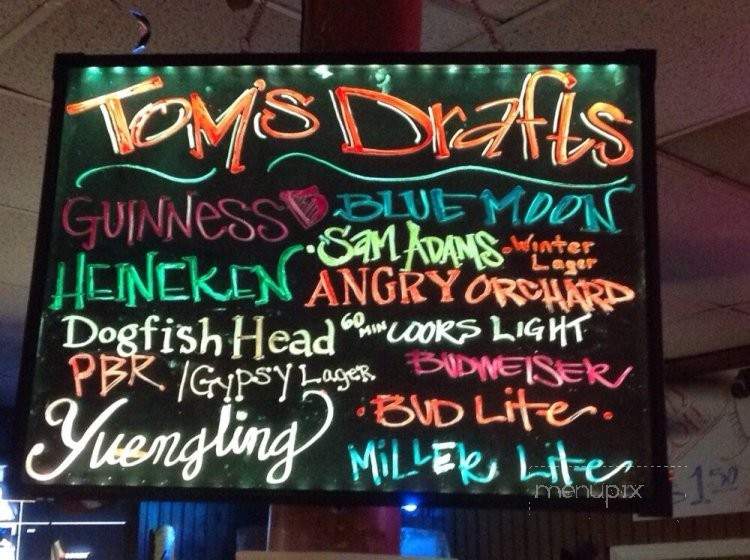 Tom's Drafts
GUINNESS BLUE MOON
HEINEKEN
Sam ADAMS - Winter
Lager
ANGRY ORCHARD
Dogfish Head 60 MIN
COORS LIGHT
PBR /Gypsy Lager
BUDWEISER
Yuengling
BUD Lite
MiLLER Lite
menupix
1.50